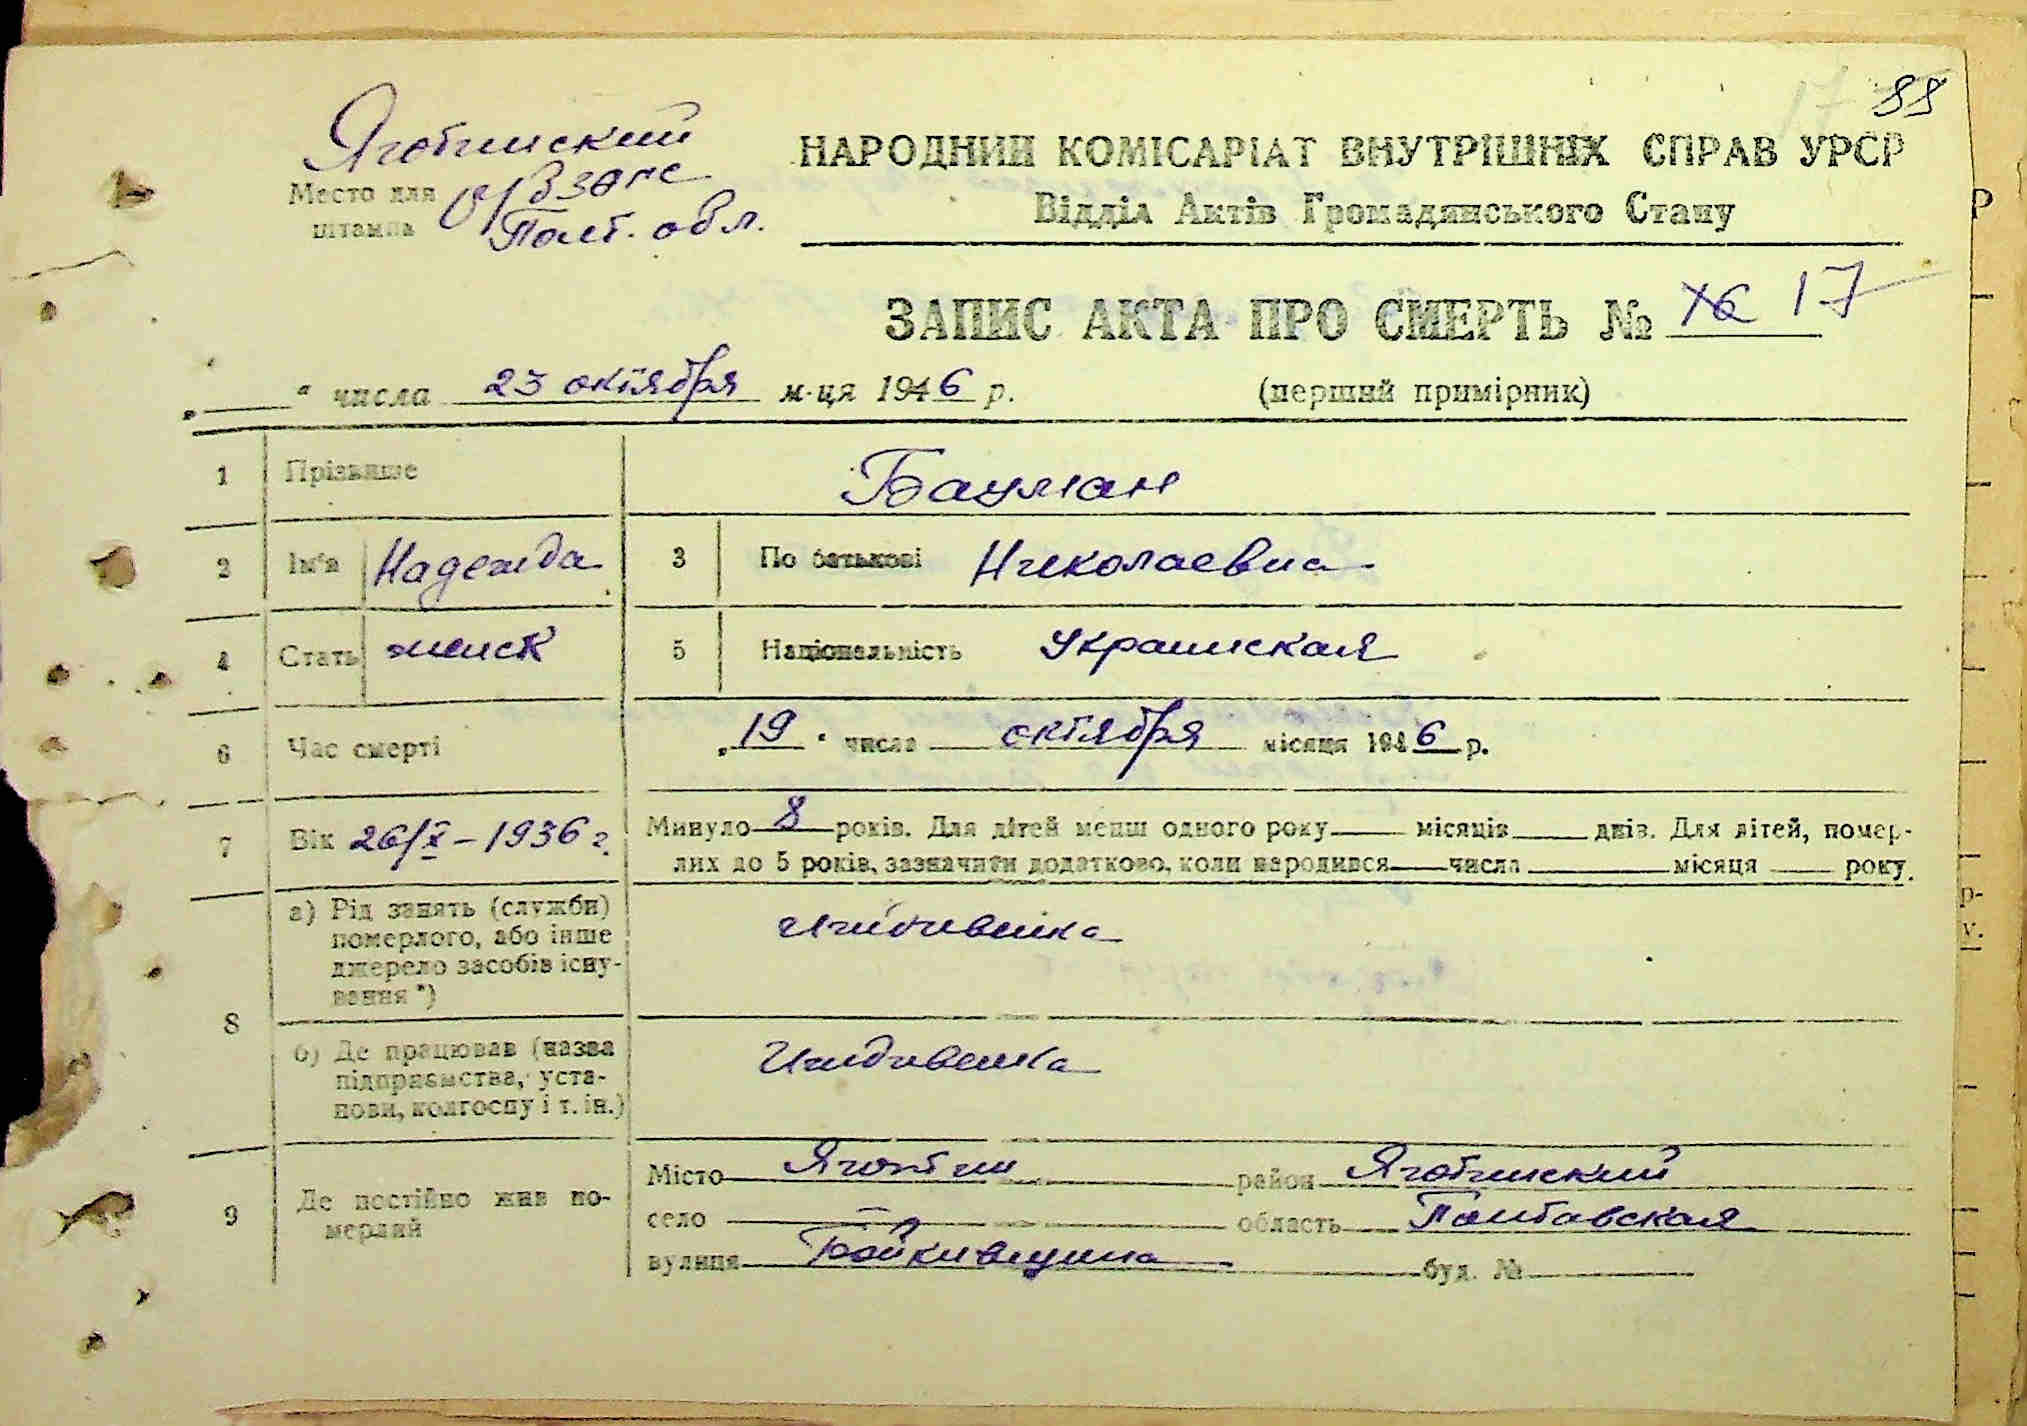 88
Яготинский
НАРОДНИЙ КОМІСАРІАТ ВНУТРІШНІХ СПРАВ УРСР
Место для
штампа
Полт. обл.
Відділ Актів Громадянського Стану
ЗАПИС АКТА ПРО СМЕРТЬ № 16 17
„ “ числа 23 октября м-ця 1946 р. (перший примірник)
1 Прізвище Бауман
2 Ім'я Надежда 3 По батькові Николаевна
4 Стать женск 5 Національність Украинская
6 Час смерті „19“ числа октября місяця 1946 р.
7 Вік 26/X-1936 г. Минуло 8 років. Для дітей менш одного року місяців днів. Для дітей, помер-
лих до 5 років, зазначити додатково, коли народився числа місяця року.
8 а) Рід занять (служби)
померлого, або інше
джерело засобів існу-
вання *)
Иждивенка
б) Де працював (назва
підприємства, уста-
нови, колгоспу і т. ін.)
Иждивенка
9 Де постійно жив по-
мерлий
Місто Яготин район Яготинский
село — область Полтавская
вулиця Бойкивщина буд. №